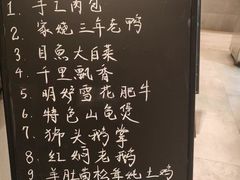 1. 手工肉包
2. 家烧三年老鸭
3. 目魚大白菜
4. 千里飘香
5. 明炉雪花肥牛
6. 特色山龟煲
7. 狮头鹅掌
8. 红焖老鹅
9. 羊肚菌松茸炖土鸡